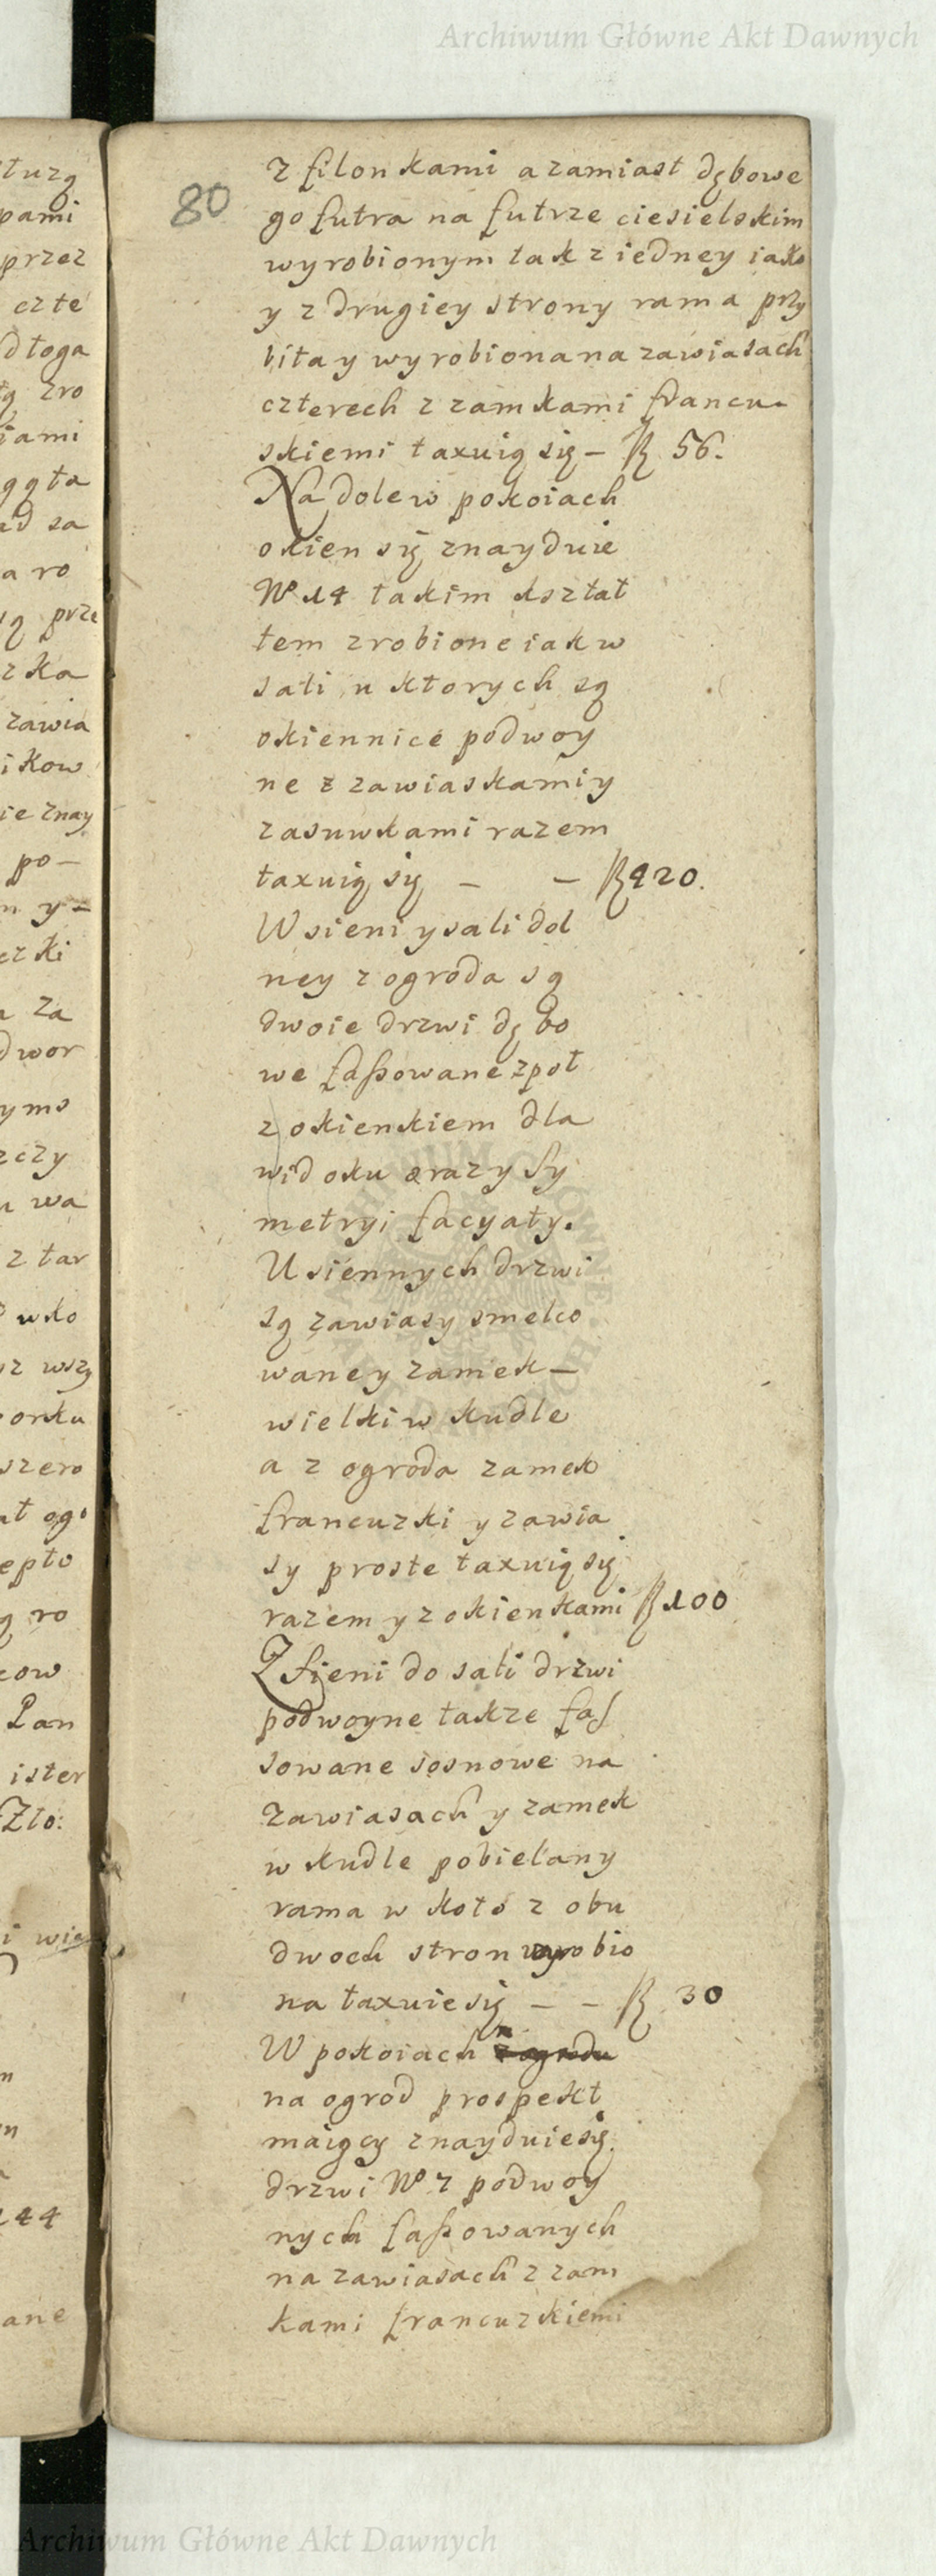 Archiwum Główne Akt Dawnych
80
z filonkami a zamiast dębowe
go futra na futrze ciesielskim
wyrobionym tak z iedney iako
y z drugiey strony rama przy
bita y wyrobiona na zawiasach
czterech z zamkami francu-
skiemi taxuią się – 56.
Na dole w pokoiach
okien się znayduie
No 14 takim kształ
tem zrobione iak w
sali u ktorych są
okiennice podwoy
ne z zawiaskami y
zasuwkami razem
taxuią się – – 420.
W sieni y sali dol
ney z ogroda są
dwoie drzwi dębo
we faßowane zpoł
z okienkiem dla
widoku zrazy Sy
metryi facyaty.
U siennych drzwi
są zawiasy smelco
wane y zamek –
wielki w kudle
a z ogroda zamek
francuzki y zawia
sy proste taxuią się
razem y z okienkami 100
Z Sieni do sali drzwi
podwoyne takze faS
sowane sosnowe na
zawiasach y zamek
w kudle pobielany
rama w koło z obu
dwoch stron wyrobio
na taxuie się – – 30
W pokoiach z ogrodu
na ogrod prospekt
maiącÿ znayduie się
drzwi No 7 podwoy
nych faßowanych
na zawiasach z zam
kami francuzkiemi
tuzą
pami
przez
czte
dłoga
zro
iami
ro
prze
zka
zawia
ikow
ie znay
po –
y –
za
dwor
yms
wa
z tar
wko
wszy
orku
szero
ro
Pan
ister
Zło:
144
ane
Archiwum Główne Akt Dawnych